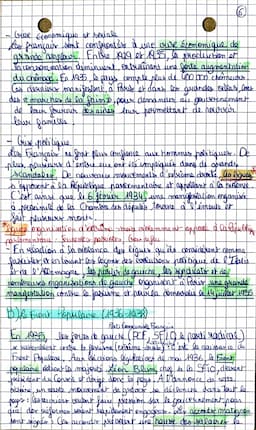 6
- Crise économique et sociale
Les français sont confrontés à une crise économique de
grande ampleur. Entre 1929 et 1935, la production et
la consommation diminuent, entraînant une forte augmentation
du chômage. En 1935, le pays compte plus de 400 000 chômeurs
Ces derniers manifestent à Paris et dans les grandes villes lors
des "marches de la faim" pour demander au gouvernement
de leur fournir des aides leur permettant de nourrir
leur famille.
- Crise politique
Les Français ne font plus confiance aux hommes politiques. De
plus, plusieurs d'entre eux ont été impliqués dans de grands
scandales. De nouveaux mouvements d'extrême droite, les ligues
s'opposent à la République parlementaire et appellent à la
C'est ainsi que le 6 février 1934, une manifestation organisée
à proximité de la Chambre des députés tourne à l'émeute et
fait plusieurs morts.
organisation d'extrême droite opposée à la République
parlementaire.
- En réaction à la violence des ligues qu'ils considèrent comme
fascistes et tirant les leçons des évolutions politiques de l'Italie
et de l'Allemagne, les partis de gauche, les syndicats et de
nombreuses organisations de gauche organisent à Paris une grande
manifestation contre le fascisme et pour la démocratie le 14 juillet 1935
b) Le Front Populaire (1936-1938)
Parti Communiste Français
En 1935, les partis de gauche (PCF, SFIO, le parti radical)
se rassemblent contre le fascisme c'est la naissance du
Front Populaire. Aux élections législatives de mai 1936, le Front
populaire obtient la majorité. Léon Blum, chef de la SFIO, devient
président du Conseil et dirige donc le pays. À l'annonce de cette
victoire, un vaste mouvement de grève se déclenche dans tout le
pays : les ouvriers veulent faire pression sur le gouvernement pour
que des réformes soient rapidement engagées. Les accords Matignon
sont signés : ils accordent une hausse des salaires